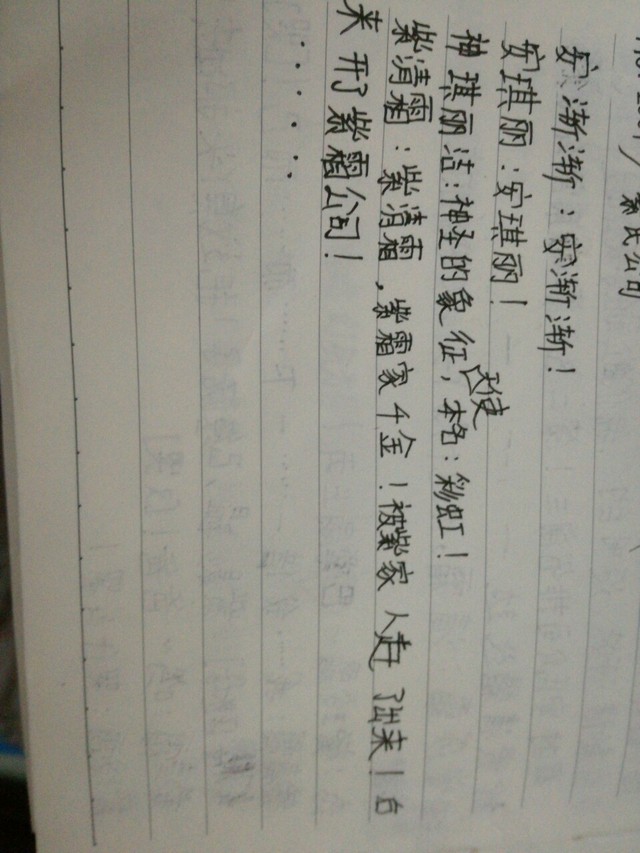 氏公司
安渐渐：安渐渐！
安琪丽：安琪丽！
神琪丽洁：神圣的象征，天使本名：彩虹！
紫清霜：紫清霜，紫霜家千金！被紫家人赶了出来！后
来开了紫霜公司！
······